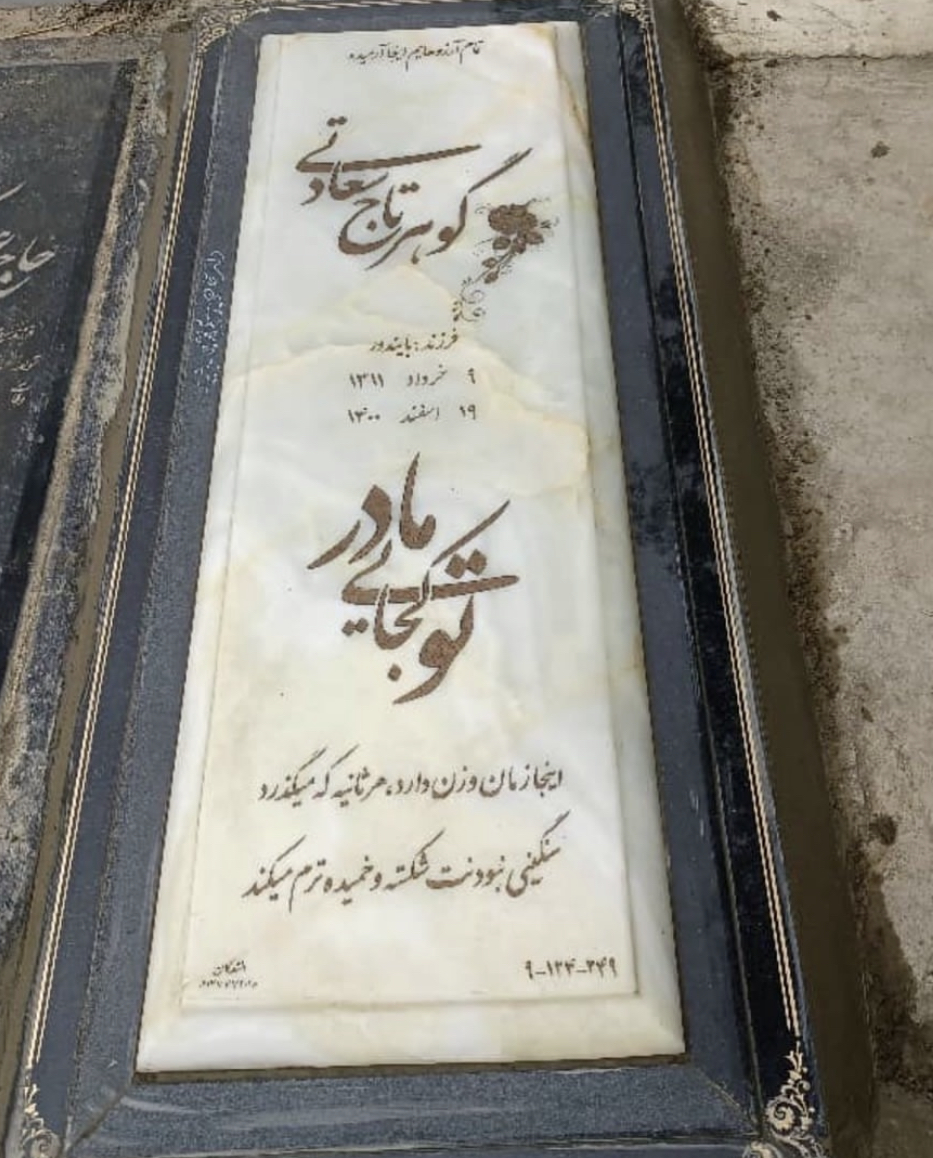 تمام آرزوهایم اینجا آرمیده
گوهرتاج سعادتی
فرزند: بایندور
۹ خرداد ۱۳۱۱
۱۹ اسفند ۱۴۰۰
مادر
تو کجایی
اینجا زمان وزن دارد، هر ثانیه که میگذرد
سنگینی نبودنت شکسته و خمیده ترم میکند
۹-۱۲۴-۲۴۹